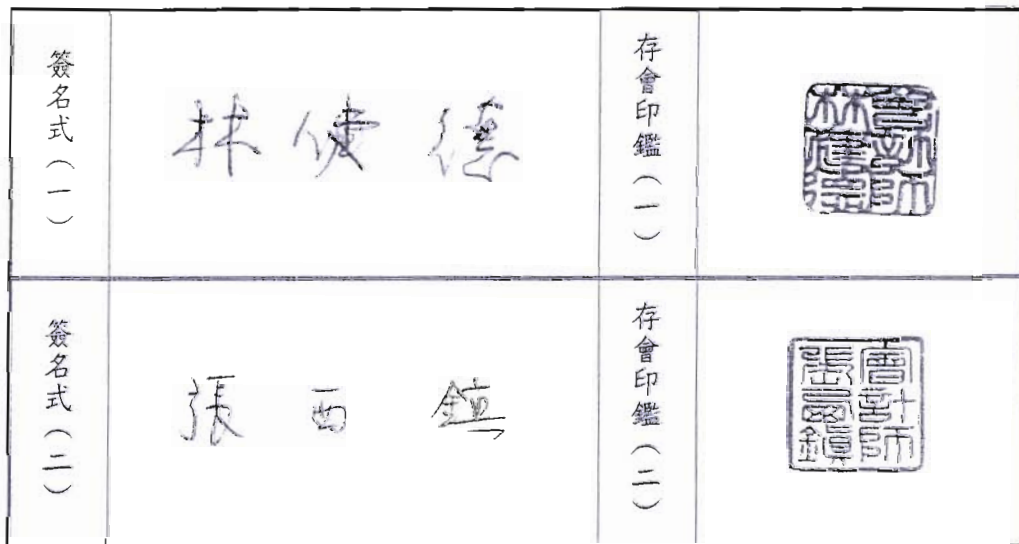 簽名式（一）
林 德
存會印鑑（一）
會計師
簽名式（二）
張西鎮
存會印鑑（二）
會計師
張西鎮